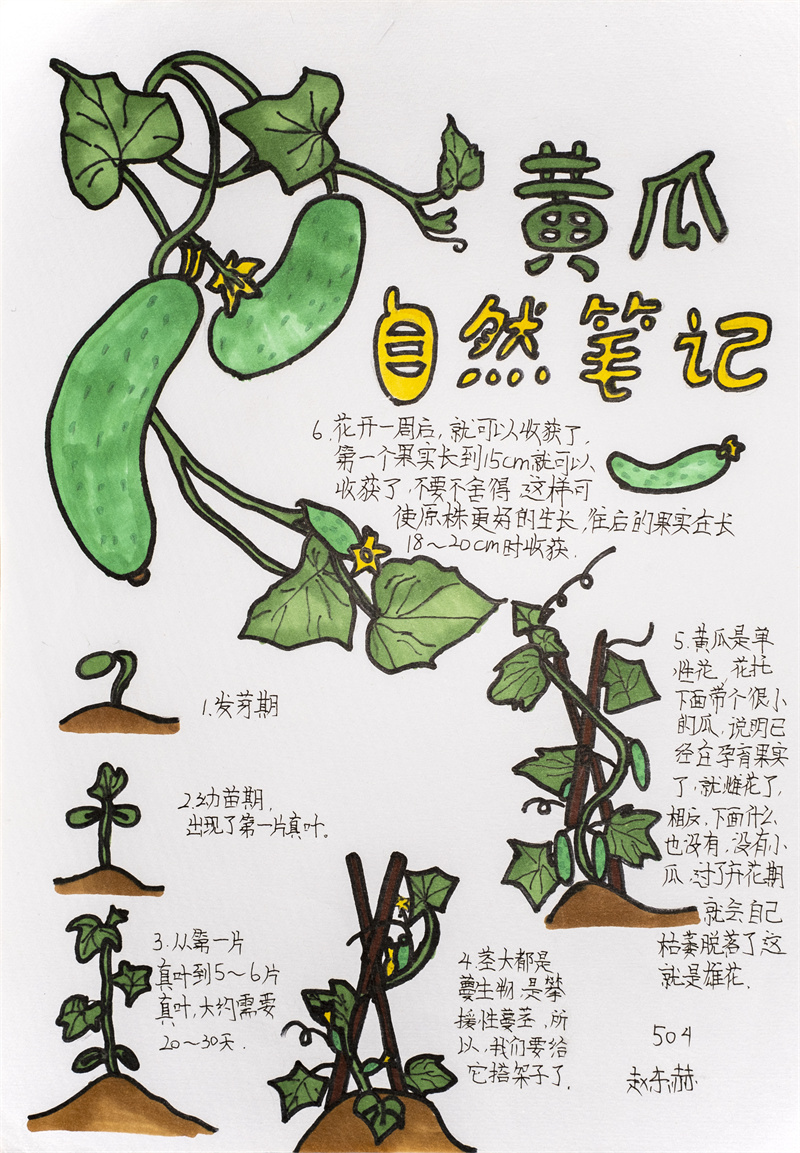 黄瓜
自然笔记
6.花开一周后,就可以收获了.
第一个果实长到15cm就可以
收获了,不要不舍得.这样可
使原株更好的生长,往后的果实在长
18～20cm时收获.
1.发芽期
2.幼苗期,
出现了第一片真叶。
3.从第一片
真叶到5～6片
真叶,大约需要
20～30天.
4.茎大都是
蔓生物,是攀
援性蔓茎,所
以,我们要给
它搭架子了.
5.黄瓜是单
性花,花托
下面带个很小
的瓜,说明已
经在孕育果实
了,就雌花了,
相反,下面什么
也没有,没有小
瓜,过了开花期
就会自己
枯萎脱落了这
就是雄花.
504
赵东赫